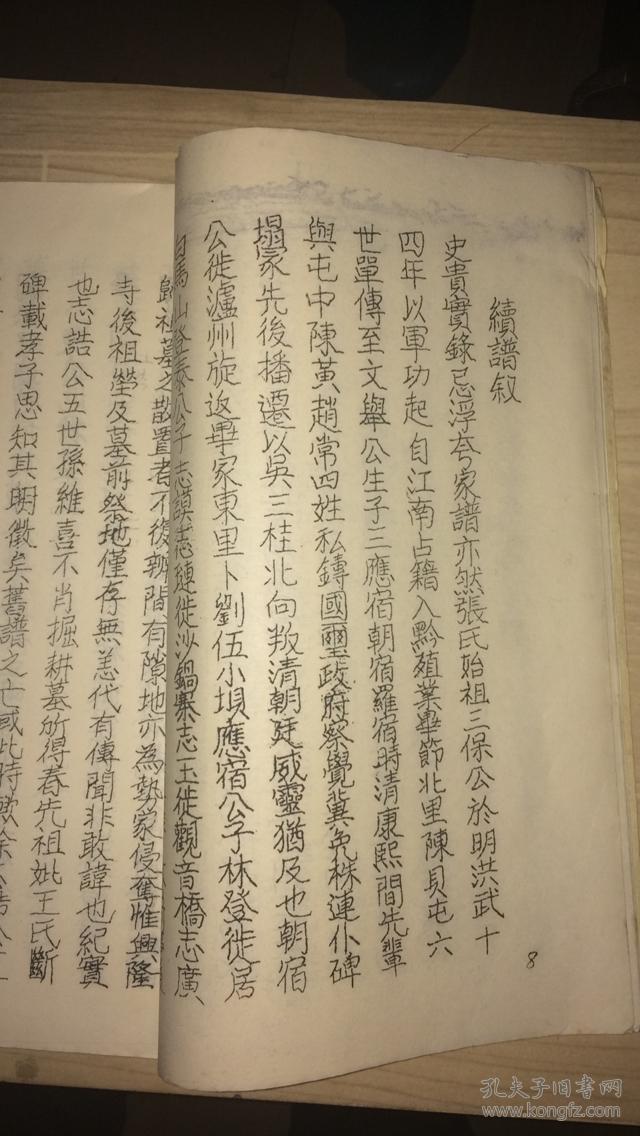 續譜叙
史貴實錄忌浮夸家譜亦然張氏始祖三保公於明洪武十
四年以軍功起自江南占籍入黔殖業畢節北里陳貝屯六
世單傳至文舉公生子三應宿朝宿羅宿時清康熙間先輩
與屯中陳黃趙常四姓私鑄國璽政府察覺冀免株連仆碑
塌冢先後播遷以吳三桂北向叛清朝廷威靈猶及也朝宿
公徙瀘州旋返畢家東里卜劉伍小壩應宿公子林登徙居
白馬山登泰公子志謨志璉徙沙鍋寨志玉徙觀音橋志廣
歸祖墓之散置者不復辨間有隙地亦為勢家侵奪惟興隆
寺後祖塋及墓前祭地僅存無恙代有傳聞非敢諱也紀實
也志誥公五世孫維喜不肖掘耕墓所得春先祖妣王氏斷
碑載孝子思知其明徵矣舊譜之亡或此時歟
8
孔夫子旧书网
www.kongfz.com